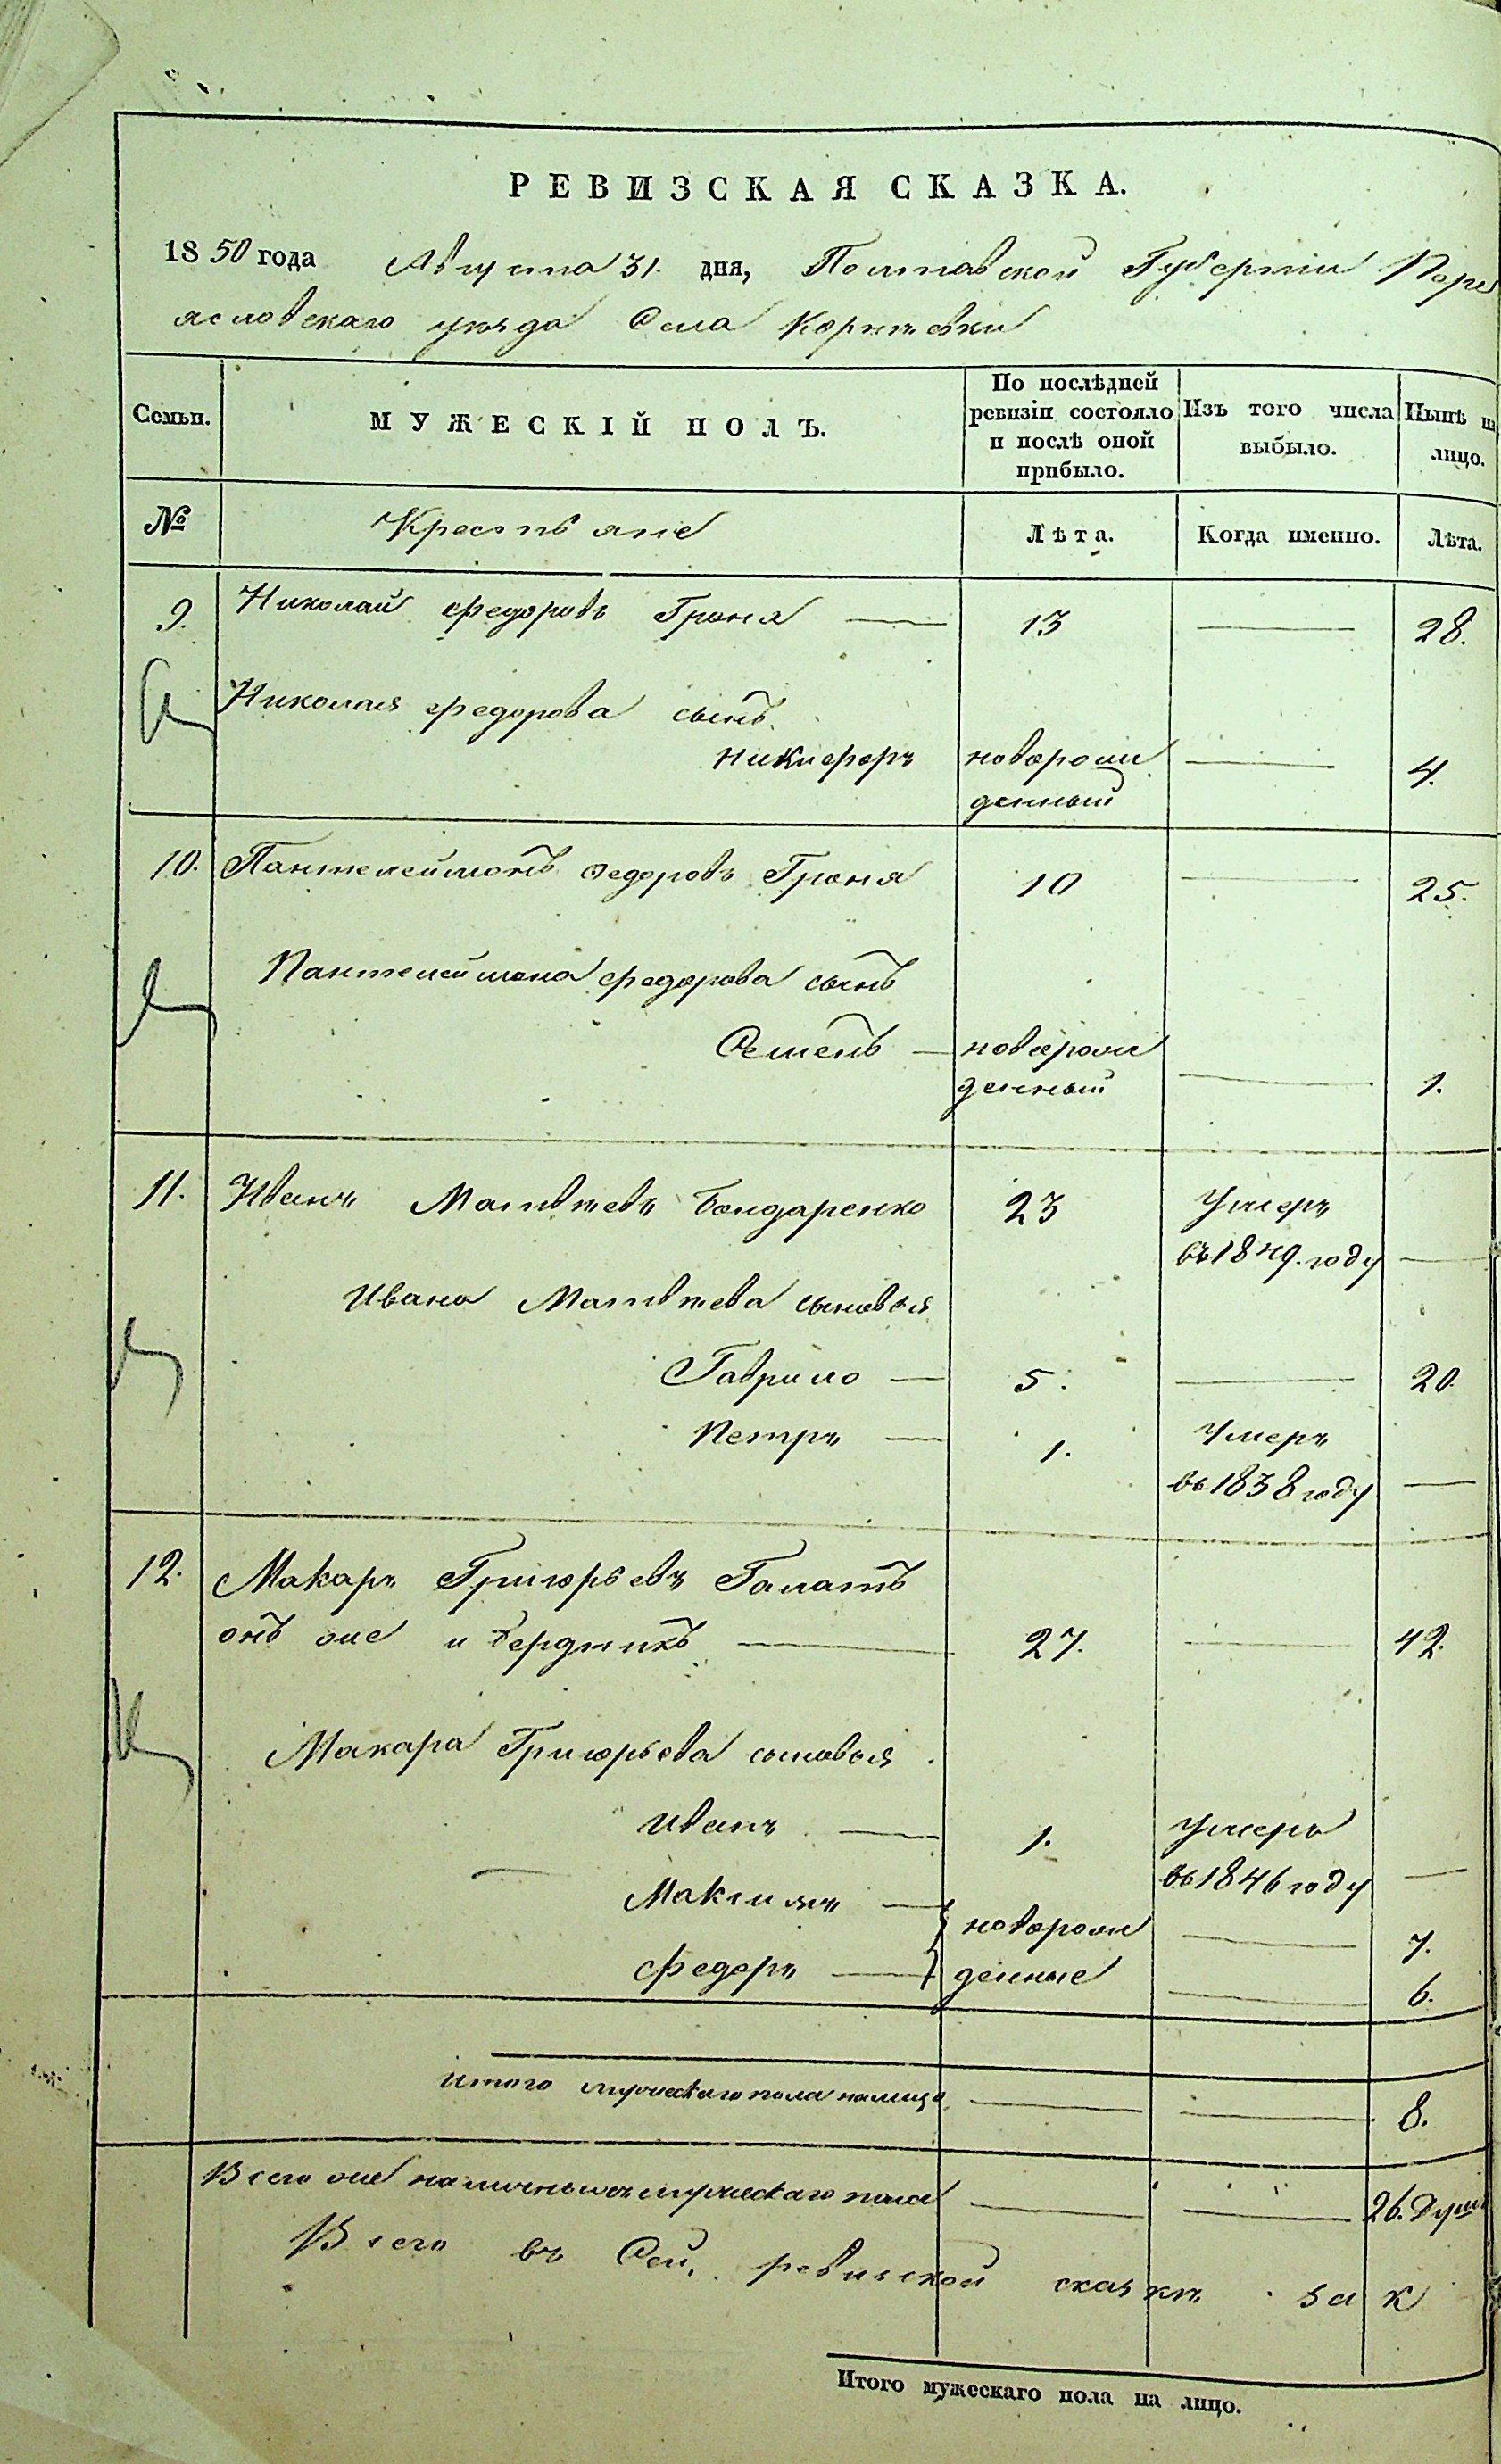 РЕВИЗСКАЯ СКАЗКА.
1850 года Августа 31. дня, Полтавской Губернии Пере
яс ловскаго уезда Села
Семьи.
МУЖЕСКІЙ ПОЛЪ.
По послѣдней
ревизіи состояло
и послѣ оной
прибыло.
Изъ того числа
выбыло.
Нынѣ на
лицо.
№
Крестьяне
Лѣта.
Когда именно.
Лѣта.
9. Николай Федоровъ Гроня — 13 — 28.
Николая Федорова сынъ
Никифоръ новорож — 4.
денный
10. Пантелеймонъ Федоровъ Гроня 10 — 25.
Пантелеймона Федорова сынъ
Семенъ — новорож
денный — 1.
11. Иванъ Матвѣевъ Бондаренко 23 Умеръ
въ 1849. году —
Ивана Матвѣева сыновья
Гаврило — 5. — 20.
Петръ — 1. Умеръ
въ 1838 году —
12. Макаръ Григорьевъ Галатъ
онъ же и Бердникъ — 27. — 42.
Макара Григорьева сыновья
Иванъ — 1. Умеръ
въ 1846 году —
Максимъ — новорож — 7.
Федоръ — денные — 6.
Итого мужескаго пола налицо — — 8.
Всего же наличныхъ мужескаго пола — — 26. Душъ
Всего въ Сей ревизской сказкѣ за к
Итого мужескаго пола на лицо.